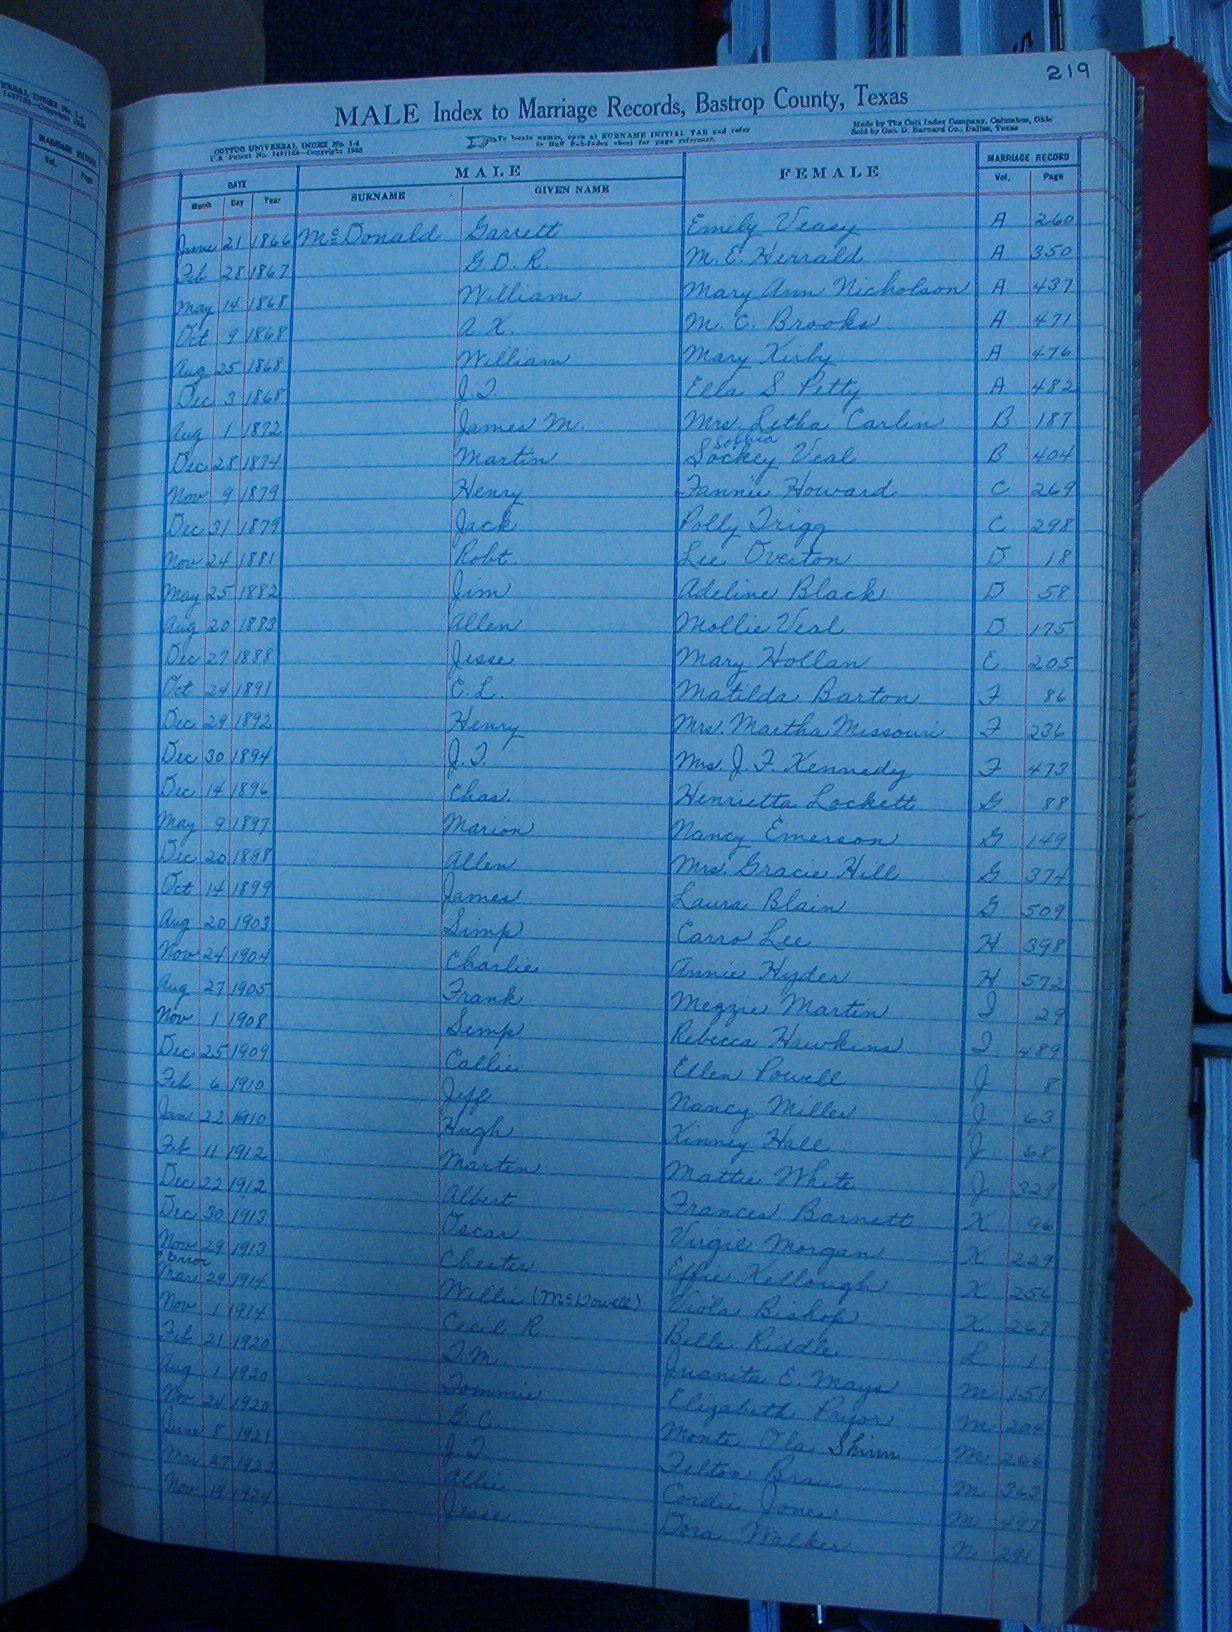 219
MALE Index to Marriage Records, Bastrop County, Texas
COTTCO UNIVERSAL INDEX No. 1-4
To locate names, open at SURNAME INITIAL TAB and refer
Made by The Cott Index Company, Columbus, Ohio
Sold by Geo. D. Barnard Co., Dallas, Texas
DATE MALE FEMALE MARRIAGE RECORD
Month Day Year SURNAME GIVEN NAME Vol. Page
June 21 1866 McDonald Garrett Emily Veasy A 260
Feb 28 1867 G. D. R. M. E. Herrald A 350
May 14 1868 William Mary Ann Nicholson A 437
Oct 9 1868 A. K. M. C. Brooks A 471
Aug 25 1868 William Mary Kirby A 476
Dec 3 1868 J. T. Ella S. Petty A 482
Aug 1 1872 James M. Mrs. Letha Carlin B 187
Dec 28 1874 Martin Sockey Veal B 404
Nov 9 1879 Henry Fannie Howard C 269
Dec 31 1879 Jack Polly Trigg C 298
Nov 24 1881 Robt. Lee Overton D 18
May 25 1882 Jim Adeline Black D 58
Aug 20 1883 Allen Mollie Veal D 175
Dec 27 1888 Jesse Mary Hollan E 205
Oct 24 1891 E. L. Matilda Barton F 86
Dec 29 1892 Henry Mrs. Martha Missouri F 236
Dec 30 1894 J. T. Mrs. J. F. Kennedy F 473
Dec 14 1896 Chas. Henrietta Lockett G 88
May 9 1897 Marion Nancy Emerson G 149
Dec 20 1898 Allen Mrs. Gracie Hill G 374
Oct 14 1899 James Laura Blain G 509
Aug 20 1903 Simp Carro Lee H 398
Nov 24 1904 Charlie Annie Hyder H 572
Aug 27 1905 Frank Mezzie Martin I 29
Nov 1 1908 Simp Rebecca Hawkins I 489
Dec 25 1909 Callie Ellen Powell J 8
Feb 6 1910 Jeff Nancy Miller J 63
Jan 22 1910 Hugh Kinney Hall J 68
Feb 11 1912 Martin Mattie White J 329
Dec 22 1912 Albert Frances Barnett K 96
Dec 30 1913 Oscar Virgie Morgan K 229
Nov 29 1913 Chester Effie Kellough K 256
Error
Mar 29 1914 Willie (McDowell) Viola Bishop K 267
Nov 1 1914 Cecil R. Belle Riddle L 1
Feb 21 1920 T. M. Juanita E. Mays M 151
Aug 1 1920 Tommie Elizabeth Pryor M 204
Nov 24 1920 G. C. Monte Ola Shinn M 266
June 8 1921 J. T. Felton M 363
Mar 27 Allie Cordie Jones M
Nov 19 1924 Jesse Dora Walker N 291